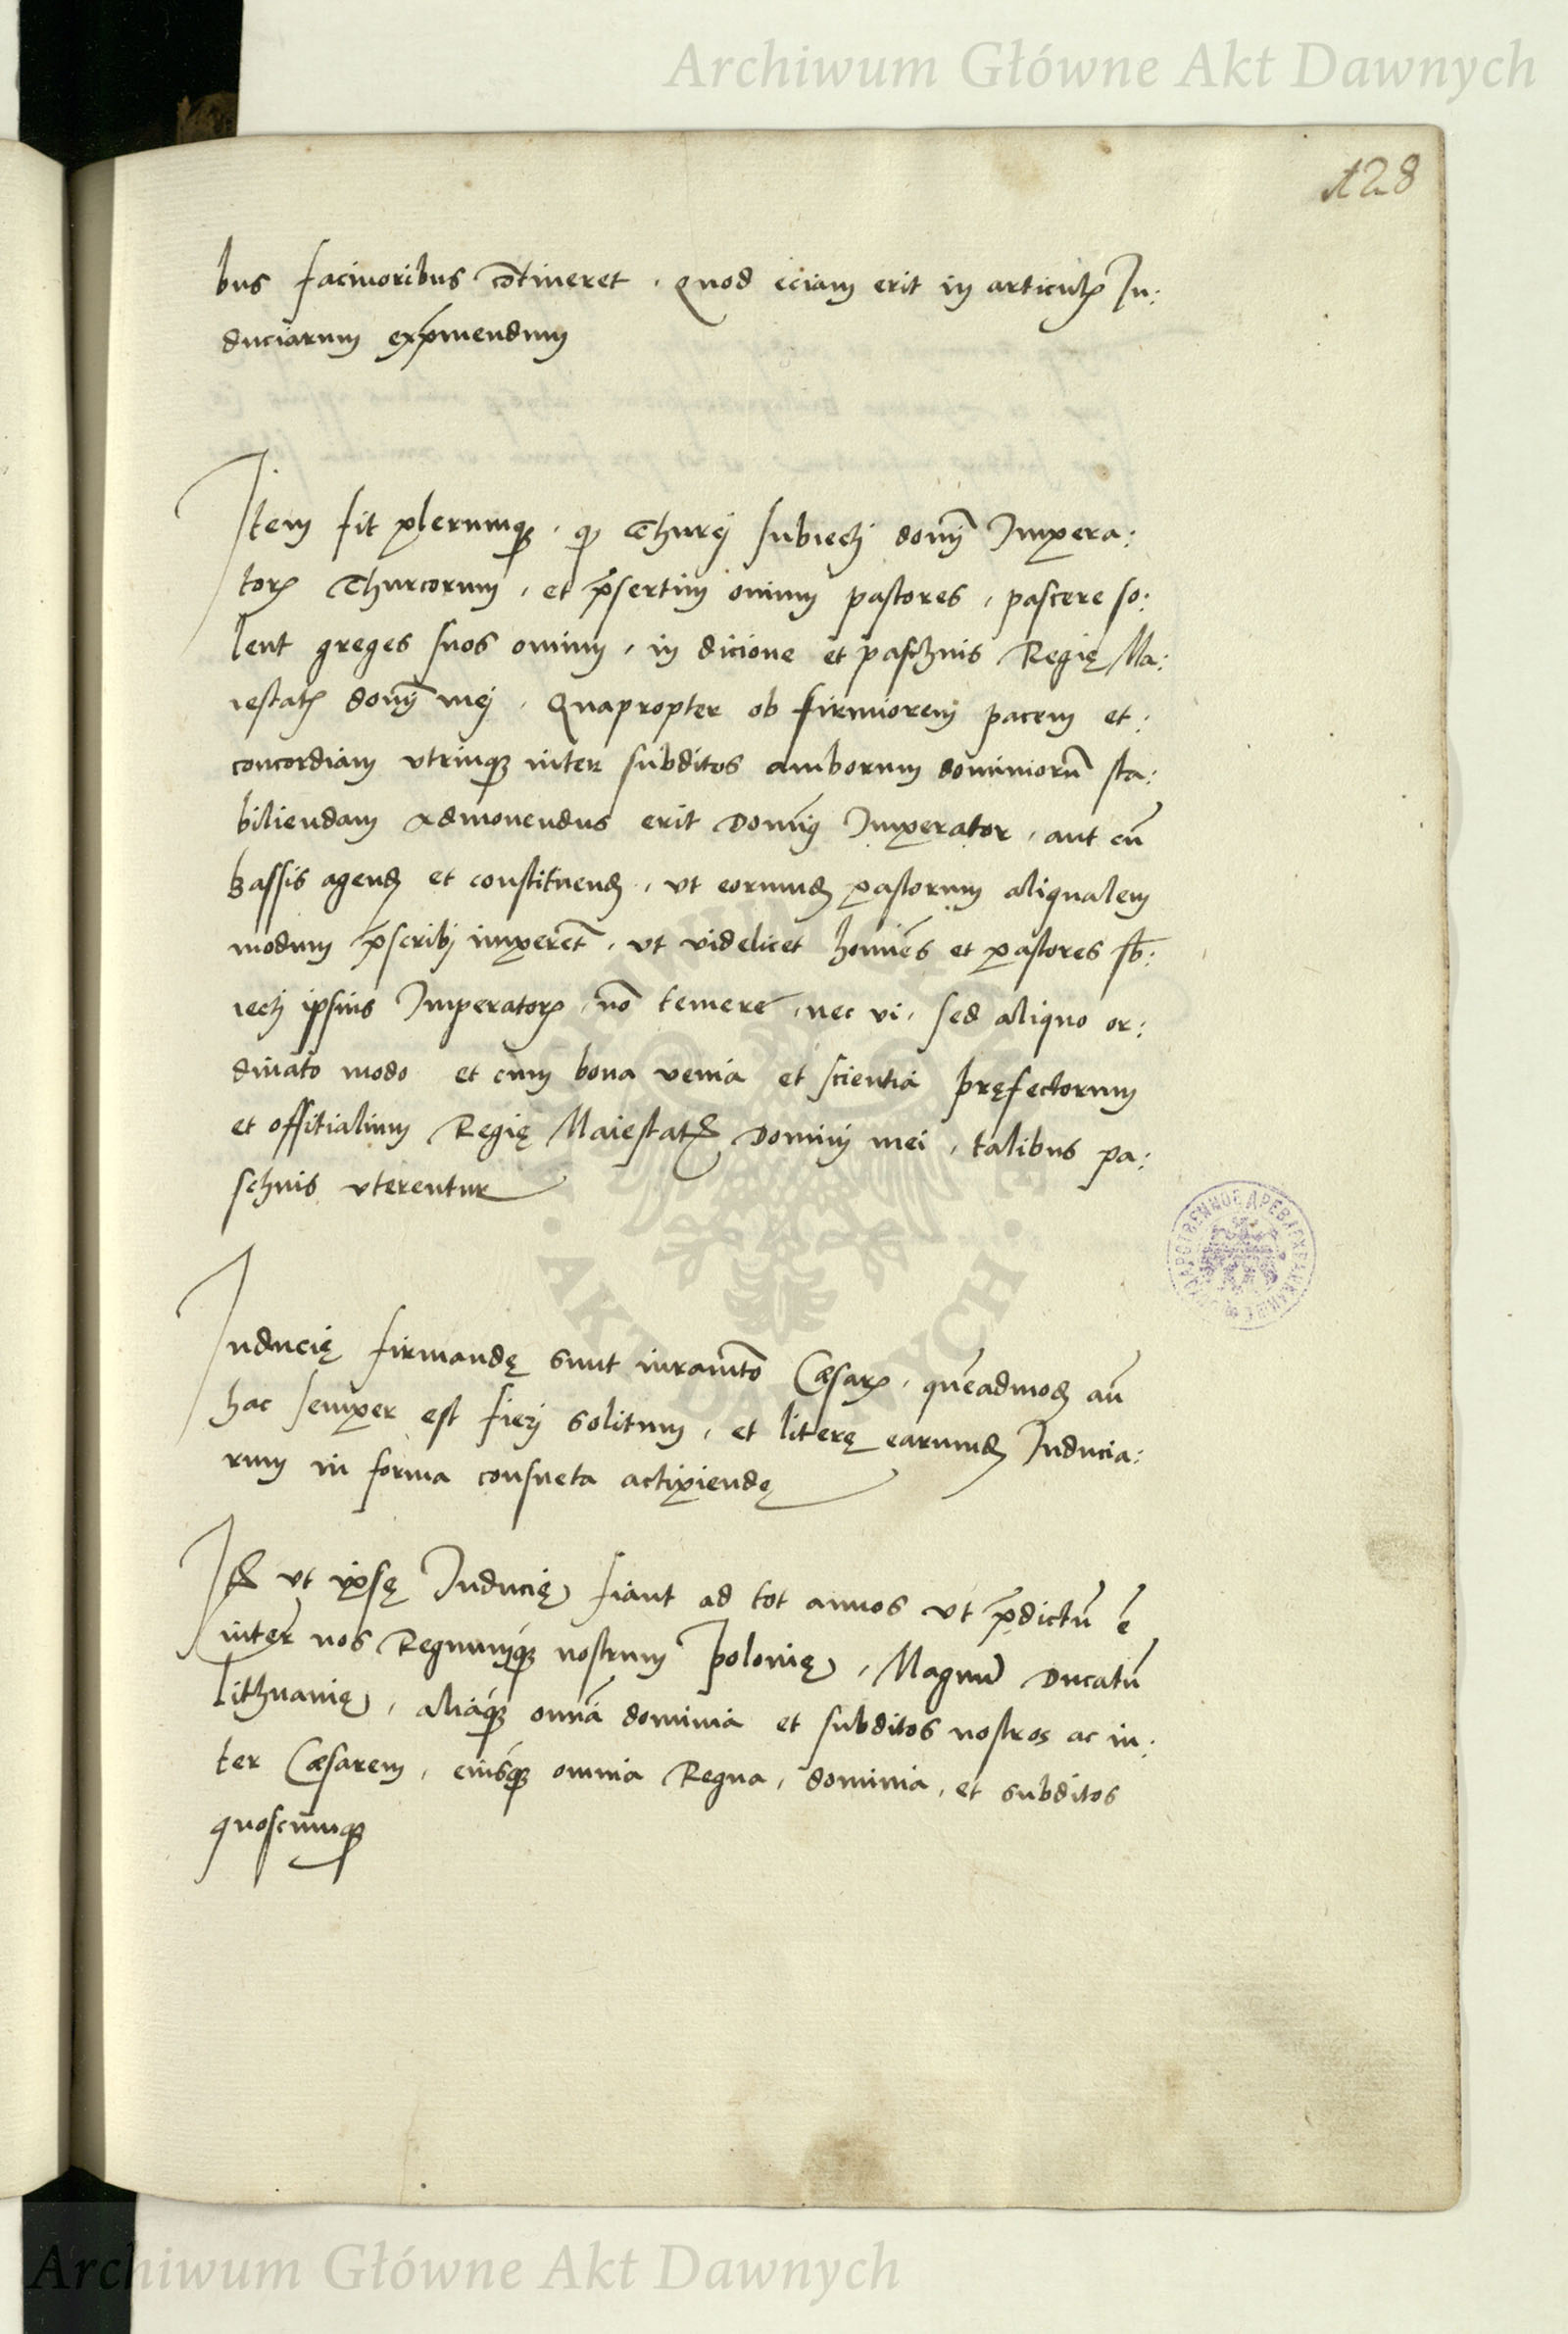 Archiwum Główne Akt Dawnych
128
bus facinoribus cōtineret, Quod eciam erit in articulis In:
duciarum exp̄mendum
Item fit plerumq; , q̨ Thurci subiecti domi̅ Impera:
toris Thurcorum, et p̄sertim ovium pastores, pascere so:
lent greges suos ovium, in dicione et paschuis Regię Ma:
iestatis domi̅ mei, Quapropter ob firmiorem pacem et:
concordiam vtrinq; inter subditos amborum dominiorū sta:
biliendam admonendus erit Domi̅us Imperator, aut cū
bassis agend et constituend, vt eorumd pastorum aliqualem
modum p̄scribi imperēt, vt videlicet homi̅es et pastores sb̄:
iecti ipsius Imperatoris, nō temere, nec vi, sed aliquo or:
dinato modo et cum bona venia et scientia pręfectorum
et offitialium Regię Maiestatis Domini mei, talibus pa:
schuis vterentur
Inducię firmandę sunt iuramēto Cæsaris, quēadmod añ
hac semper est fieri solitum, et literę earumd Inducia:
rum in forma consueta actipiendę
It̃ vt ipsę Inducię fiant ad tot annos vt p̄dictū ē
inter nos Regnumq; nostrum Polonię, Magnū Ducatū
Lithuanię, aliaq; omi̅a dominia et subditos nostros ac in:
ter Cæsarem, eiusq; omnia Regna, dominia, et subditos
quoscumq;
ARCHIWUM GŁÓWNE · AKT DAWNYCH ·
Archiwum Główne Akt Dawnych